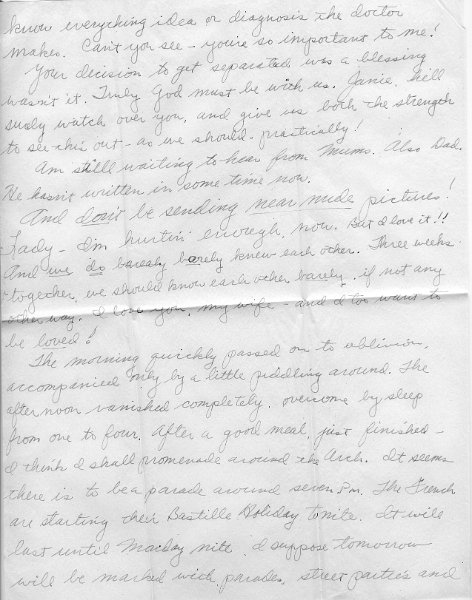 know everything idea or diagnosis the doctor
makes. Can't you see - you're so important to me!
Your decision to get separated was a blessing
wasn't it. Truly God must be with us. Janie, he'll
surly watch over you, and give us both the strength
to see this out - as we should - practically!
Am still waiting to hear from Mums. Also Dad.
He hasn't written in some time now.
And don't be sending near nude pictures!
Lady - I'm hurtin' enough, now. But I love it!!
And we do barealy barely knew each other. Three weeks
together, we should know each other barely, if not any
other way. I love you, my wife - and I too want to
be loved!
The morning quickly passed on to oblivion,
accompanied only by a little piddling around. The
afternoon vanished completely, overcome by sleep
from one to four. After a good meal, just finished -
I think I shall promenade around the Arch. It seems
there is to be a parade around seven P.m. The French
are starting their Bastille Holiday tonite. It will
last until Monday nite. I suppose tomorrow
will be marked with parades, street parties and